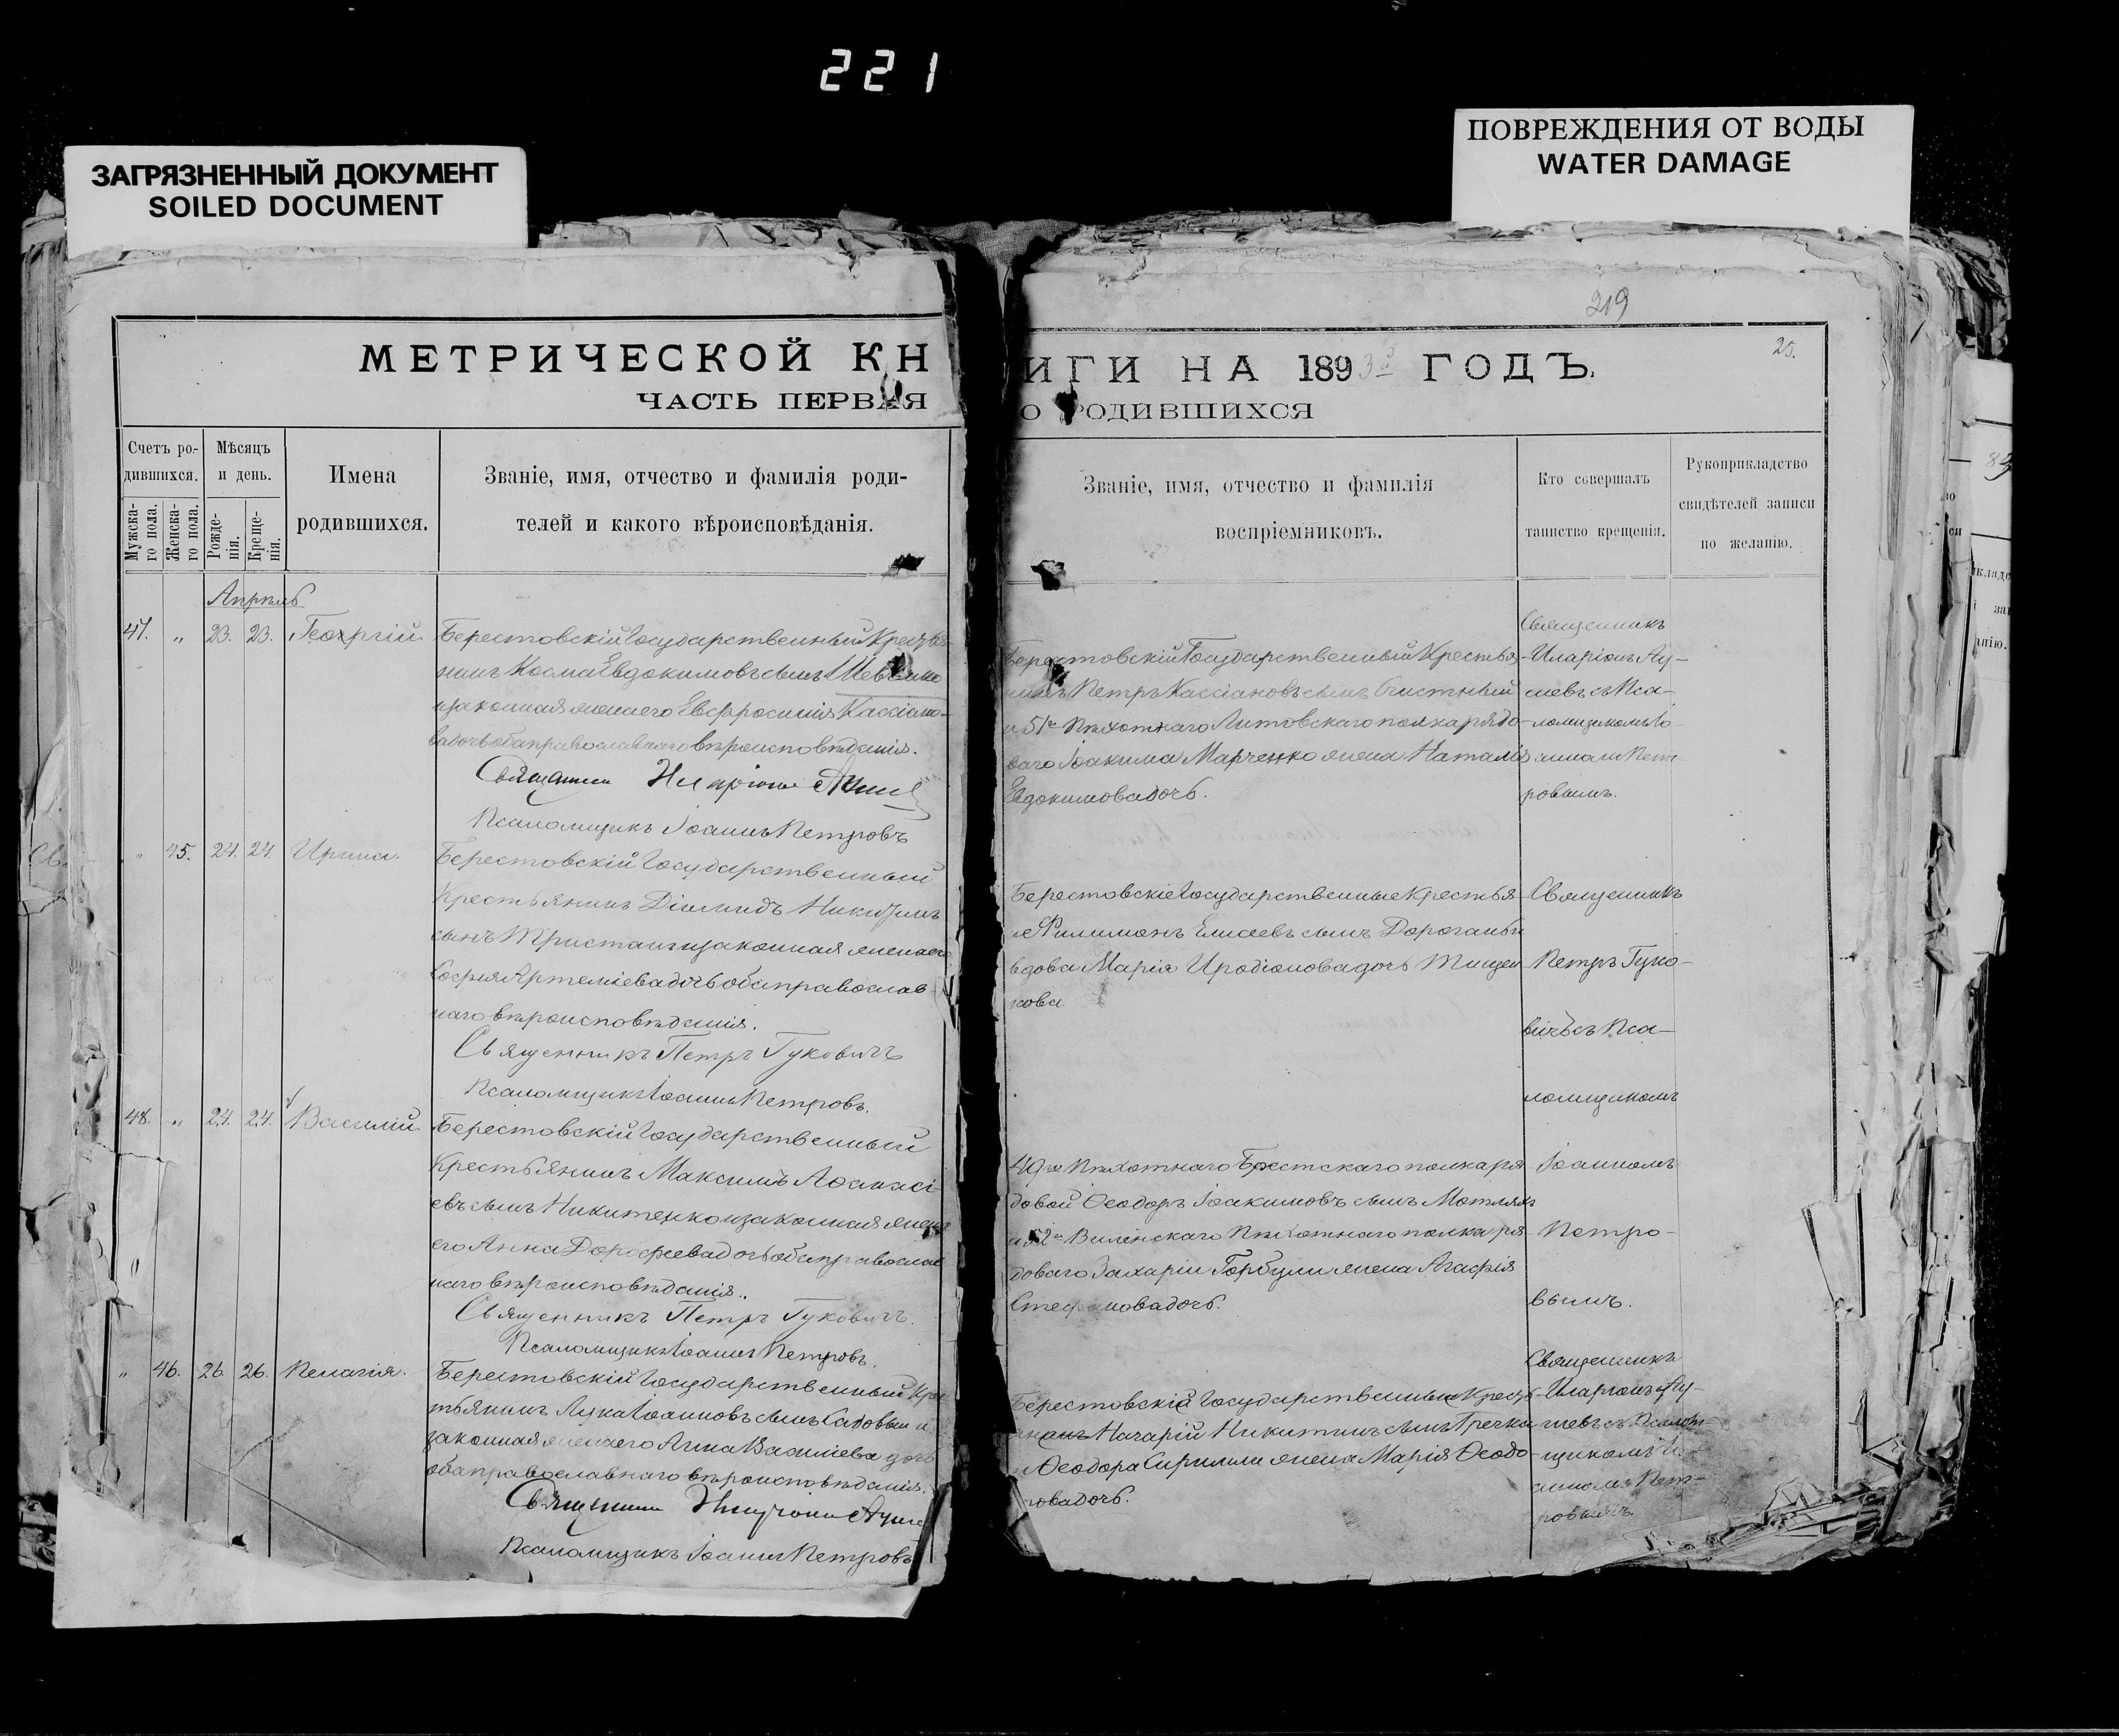 221
ЗАГРЯЗНЕННЫЙ ДОКУМЕНТ
SOILED DOCUMENT
ПОВРЕЖДЕНИЯ ОТ ВОДЫ
WATER DAMAGE
219
25.
МЕТРИЧЕСКОЙ КН
ИГИ НА 1893 ГОДЪ.
ЧАСТЬ ПЕРВАЯ
О РОДИВШИХСЯ
Счетъ ро-
дившихся.
Мужска-
го пола.
Женска-
го пола.
Мѣсяцъ
и день.
Рожде-
нія.
Креще-
нія.
Имена
родившихся.
Званіе, имя, отчество и фамилія роди-
телей и какого вѣроисповѣданія.
Званіе, имя, отчество и фамилія
воспріемниковъ.
Кто совершалъ
таинство крещенія.
Рукоприкладство
свидѣтелей записи
по желанію.
Апрѣль
47. " 23. 23. Георгій
Берестовскій Государственный Крестья
нинъ Косма Евдокимовъ сынъ
и законная жена его Евфросинія Кассіано-
ва дочь оба православнаго вѣроисповѣданія.
Священникъ Иларіонъ
Псаломщикъ Іоаннъ Петровъ
Берестовскій Государственный Крестья
нинъ Петръ Кассіановъ сынъ
и 51го Пѣхотнаго Литовскаго полка рядо-
ваго Іоакима Марченко жена Наталія
Евдокимова дочь.
Священникъ
Иларіонъ
съ Пса-
ломщикомъ Іо-
анномъ Пет-
ровымъ.
" 45. 24. 24. Ирина.
Берестовскій Государственный
Крестьянинъ Діомидъ Никитинъ
сынъ Тристанъ и законная жена его
Софія Артеміева дочь оба православ
наго вѣроисповѣданія.
Священникъ Петръ Гуковичъ
Псаломщикъ Іоаннъ Петровъ.
Берестовскіе Государственные Крестья
не Филимонъ Елисеевъ сынъ
вдова Марія Иродіонова дочь Тищен
кова
Священникъ
Петръ Гуко-
вичъ съ Пса-
ломщикомъ
Іоанномъ
Петро-
вымъ.
48. " 24. 24. Василій
Берестовскій Государственный
Крестьянинъ Максимъ Аѳанасі
евъ сынъ Никитенко и законная жена
его Анна Дорофеева дочь оба православ
наго вѣроисповѣданія.
Священникъ Петръ Гуковичъ.
Псаломщикъ Іоаннъ Петровъ.
49го Пѣхотнаго Брестскаго полка ря
довой Ѳеодоръ Іоакимовъ сынъ
и 52го Виленскаго Пѣхотнаго полка ря
доваго Захаріи Горбули жена Агафія
Стефанова дочь.
" 46. 26. 26. Пелагія.
Берестовскій Государственный Крес
тьянинъ Лука Іоанновъ сынъ Садовый и
законная жена его Анна Василіева дочь
оба православнаго вѣроисповѣданія.
Священникъ Иларіонъ
Псаломщикъ Іоаннъ Петровъ
Берестовскій Государственный Кресть
янинъ Назарій Никитинъ сынъ Гречка
и Ѳеодора жена Марія Ѳеодо
рова дочь.
Священникъ
Иларіонъ
съ Псалом-
щикомъ І
анномъ Пет-
ровымъ.